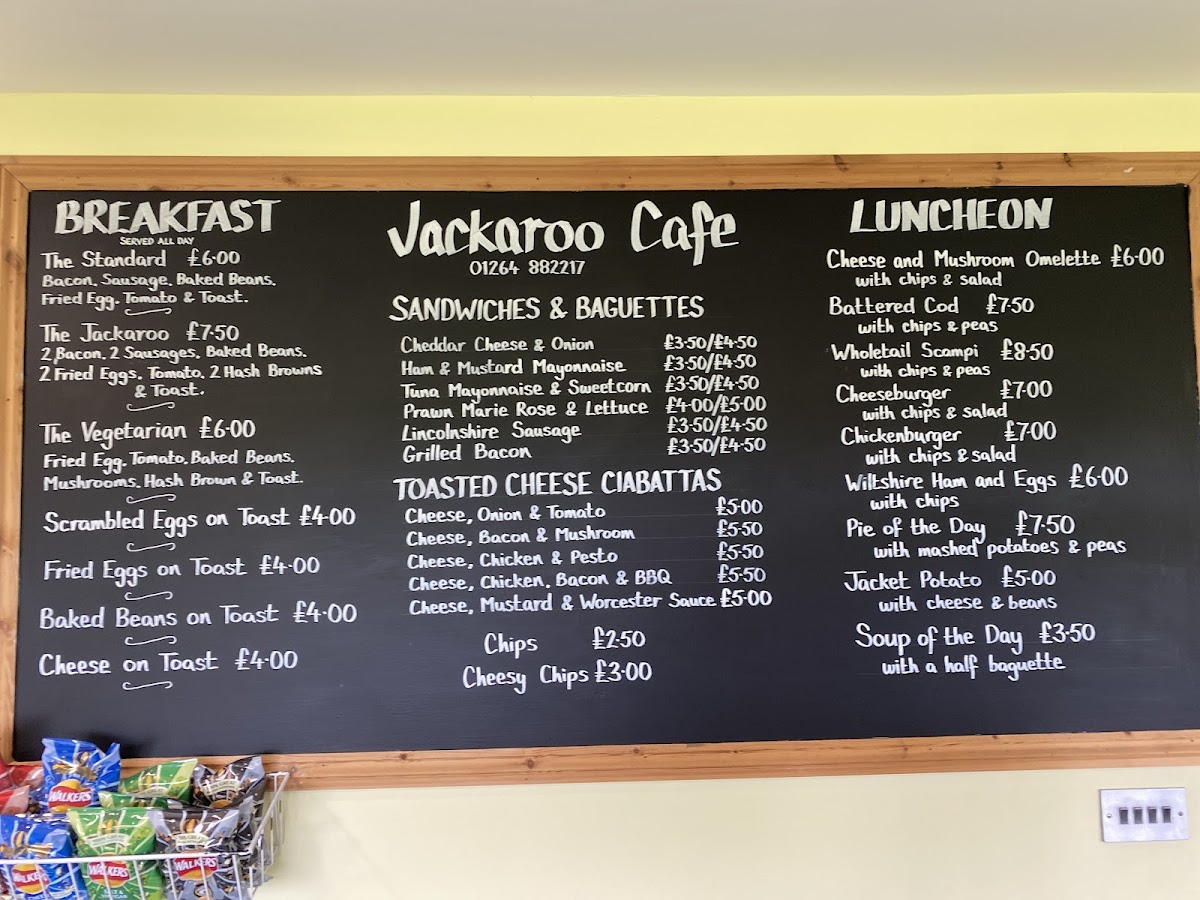 BREAKFAST
SERVED ALL DAY
The Standard £6·00
Bacon, Sausage, Baked Beans,
Fried Egg, Tomato & Toast.
The Jackaroo £7·50
2 Bacon, 2 Sausages, Baked Beans,
2 Fried Eggs, Tomato, 2 Hash Browns
& Toast.
The Vegetarian £6·00
Fried Egg, Tomato, Baked Beans,
Mushrooms, Hash Brown & Toast.
Scrambled Eggs on Toast £4·00
Fried Eggs on Toast £4·00
Baked Beans on Toast £4·00
Cheese on Toast £4·00
Jackaroo Cafe
01264 882217
SANDWICHES & BAGUETTES
Cheddar Cheese & Onion £3·50/£4·50
Ham & Mustard Mayonnaise £3·50/£4·50
Tuna Mayonnaise & Sweetcorn £3·50/£4·50
Prawn Marie Rose & Lettuce £4·00/£5·00
Lincolnshire Sausage £3·50/£4·50
Grilled Bacon £3·50/£4·50
TOASTED CHEESE CIABATTAS
Cheese, Onion & Tomato £5·00
Cheese, Bacon & Mushroom £5·50
Cheese, Chicken & Pesto £5·50
Cheese, Chicken, Bacon & BBQ £5·50
Cheese, Mustard & Worcester Sauce £5·00
Chips £2·50
Cheesy Chips £3·00
LUNCHEON
Cheese and Mushroom Omelette £6·00
with chips & salad
Battered Cod £7·50
with chips & peas
Wholetail Scampi £8·50
with chips & peas
Cheeseburger £7·00
with chips & salad
Chickenburger £7·00
with chips & salad
Wiltshire Ham and Eggs £6·00
with chips
Pie of the Day £7·50
with mashed potatoes & peas
Jacket Potato £5·00
with cheese & beans
Soup of the Day £3·50
with a half baguette
WALKERS
WALKERS
WALKERS
SALT &
VINEGAR